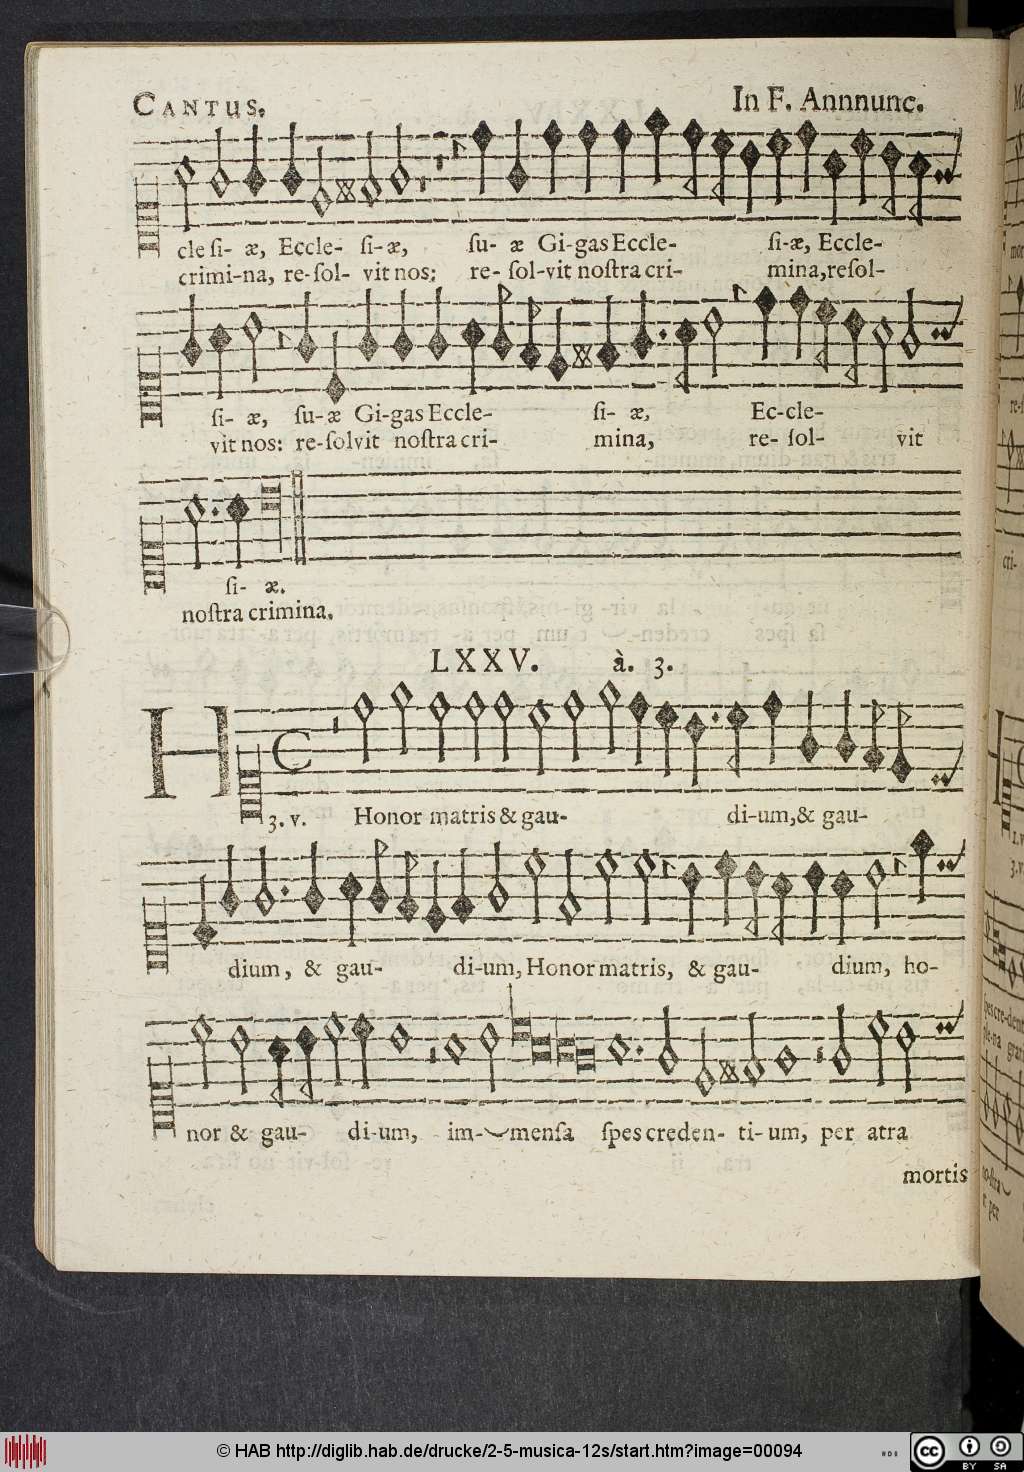 CANTUS. In F. Annnunc.
cle ſi- æ, Eccle- ſi- æ, ſu- æ Gi-gas Eccle- ſi-æ, Eccle-
crimi-na, re-ſol- vit nos: re- ſol-vit noſtra cri- mina, reſol-
ſi- æ, ſu-æ Gi-gas Eccle- ſi- æ, Ec-cle-
vit nos: re-ſolvit noſtra cri- mina, re- ſol- vit
ſi- æ.
noſtra crimina.
LXXV. à. 3.
H
3. v. Honor matris & gau- di-um,& gau-
dium, & gau- di-um, Honor matris, & gau- dium, ho-
nor & gau- di-um, im- menſa ſpes creden- ti- um, per atra
mortis
© HAB http://diglib.hab.de/drucke/2-5-musica-12s/start.htm?image=00094
cc BY SA